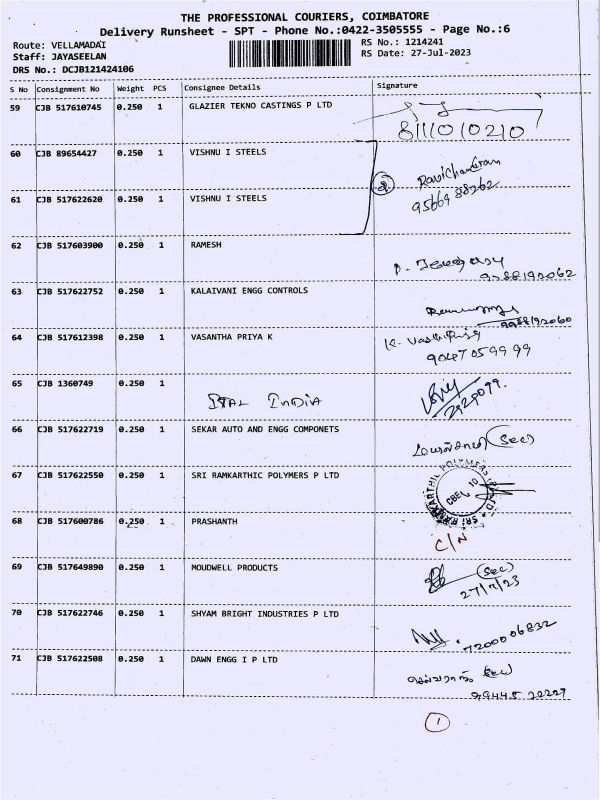 THE PROFESSIONAL COURIERS, COIMBATORE
Delivery Runsheet - SPT - Phone No.:0422-3505555 - Page No.:6
Route: VELLAMADAI
RS No.: 1214241
Staff: JAYASEELAN
RS Date: 27-Jul-2023
DRS No.: DCJB121424106
S No Consignment No Weight PCS Consignee Details Signature
59 CJB 517610745 0.250 1 GLAZIER TEKNO CASTINGS P LTD
60 CJB 89654427 0.250 1 VISHNU I STEELS
Ravichandran
61 CJB 517622620 0.250 1 VISHNU I STEELS
9566988262
62 CJB 517603900 0.250 1 RAMESH
63 CJB 517622752 0.250 1 KALAIVANI ENGG CONTROLS
64 CJB 517612398 0.250 1 VASANTHA PRIYA K
9047059999
65 CJB 1360749 0.250 1
ITAL INDIA
66 CJB 517622719 0.250 1 SEKAR AUTO AND ENGG COMPONETS
(Sec)
67 CJB 517622550 0.250 1 SRI RAMKARTHIC POLYMERS P LTD
68 CJB 517600786 0.250 1 PRASHANTH
C/N
69 CJB 517649890 0.250 1 MOUDWELL PRODUCTS (Sec)
27/7/23
70 CJB 517622746 0.250 1 SHYAM BRIGHT INDUSTRIES P LTD
7200006832
71 CJB 517622508 0.250 1 DAWN ENGG I P LTD
1